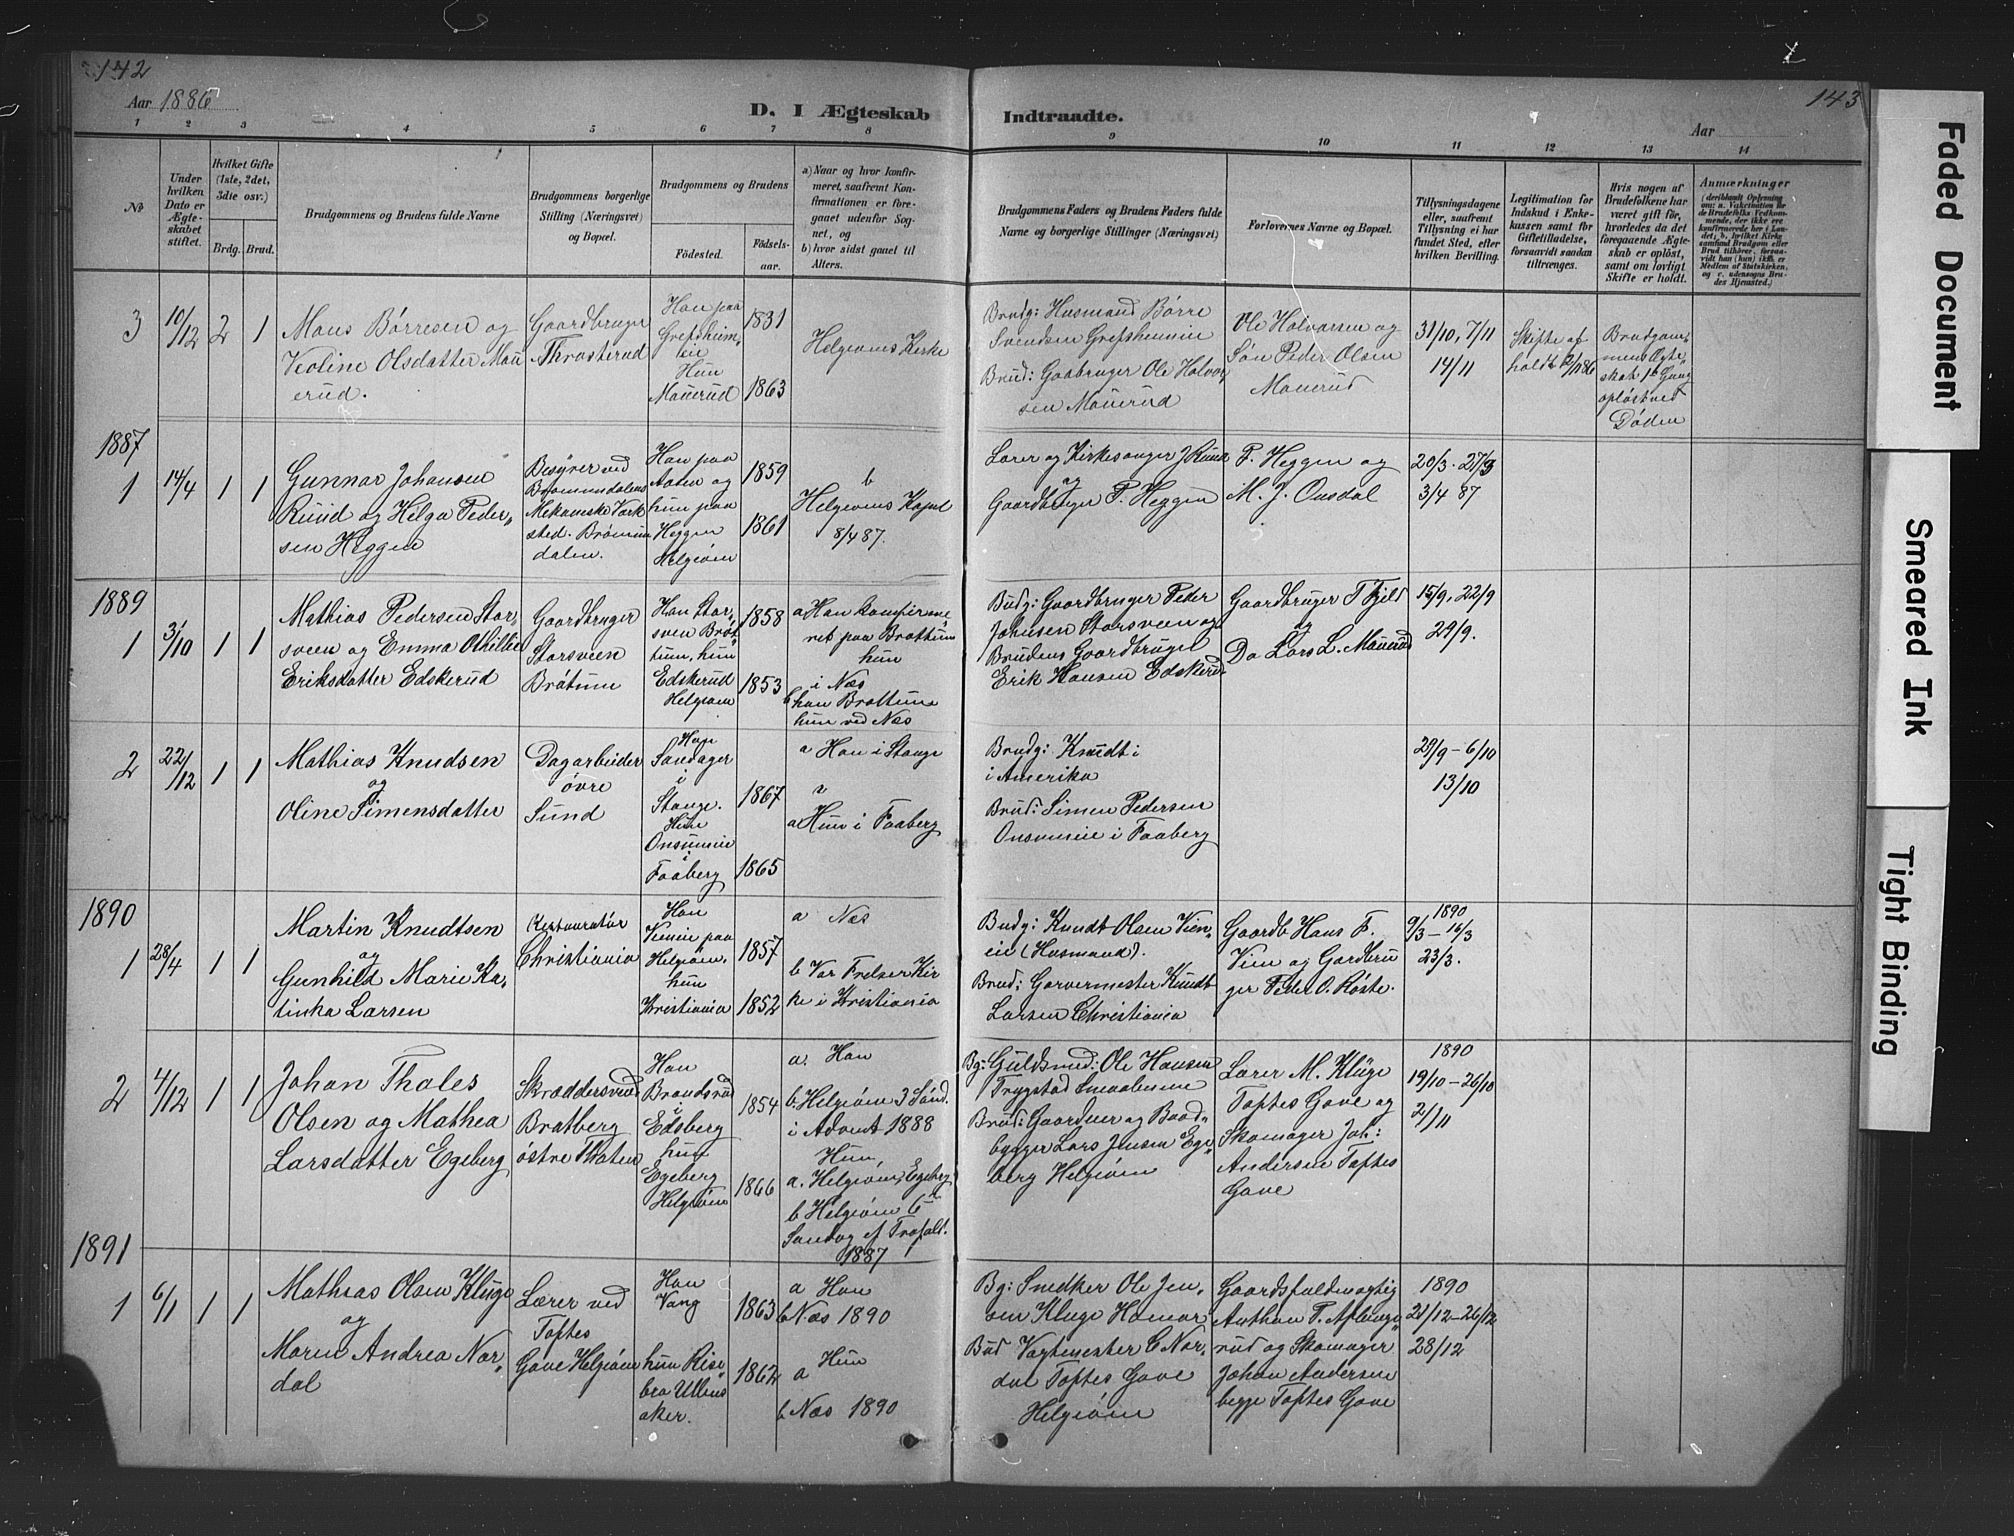 142
Aar 1886
D. I Ægteskab
Indtraadte.
Aar
143
1 2 3 4 5 6 7 8 9 10 11 12 13 14
No
Under hvilken Dato er Ægteskabet stiftet.
Hvilket Gifte (1ste, 2det, 3die osv.)
Brdg. Brud.
Brudgommens og Brudens fulde Navne
Brudgommens borgerlige Stilling (Næringsvei) og Bopæl.
Brudgommens og Brudens
Fødested.
Fødselsaar.
a) Naar og hvor konfirmeret, saafremt Konfirmationen er foregaaet udenfor Sognet, og
b) hvor sidst gaaet til Alters.
Brudgommens Faders og Brudens Faders fulde Navne og borgerlige Stillinger (Næringsvei)
Forlovernes Navne og Bopæl.
Tillysningsdagene eller, saafremt Tillysning ei har fundet Sted, efter hvilken Bevilling.
Legitimation for Indskud i Enkekassen samt for Giftetilladelse, forsaavidt saadan tiltrænges.
Hvis nogen af Brudefolkene har været gift før, hvorledes da det foregaaende Ægteskab er opløst, samt om lovligt Skifte er holdt.
Anmærkninger
3 10/12 2 1
Mons Børresen og
Veoline Olsdatter Mau
erud.
Gaardbruger
Throsterud
Han paa
Grefsheim,
eie
Hun
Mauerud
1831
1863
Helgøens Kirke
Brudg: Husmand Børre
Svendsen Grefsheimeie
Brud: Gaabruger Ole Halvor,
sen Mauerud
Ole Halvorsen og
Søn Peder Olsen
Mauerud
31/10, 7/11
14/11
Skifte af
holdt
Brudgom,
mens Ægte,
skab 1ste Gang
opløst ved
Døden
1887
1 14/4 1 1
Gunnar Johansen
Ruud og Helga Peder,
sen Heggen
Besyrer ved
Brømundalens
Mekaniske Værk
sted. Brømun
dalen.
Han paa
Aaten og
hun paa
Heggen
Helgøen
1859
1861
b
Helgøens Kapel
8/4 87.
Lærer og Kirkesanger J. Ruud
og
Gaardbruger P. Heggen
P. Heggen og
M. J. Onsdal
20/3 - 27/3
3/4 87
1889
1 3/10 1 1
Mathias Pedersen Stor,
sveen og Emma Othilie
Eriksdatter Edskerud
Gaardbruger
Storsveen
Brøtum
Han Stor,
sveen Brøt
tum, hun
Edskerud
Helgøen
1858
1853
a Han konfirme,
ret paa Brøttum
hun
i Næs
b han Brøttum
hun ved Næs
Budg: Gaardbruger Peder
Johnsen Storsveen og
Brudens Gaardbruger
Erik Hansen Edskerud
Gaardbruger T Fjeld
og
Do Lars L. Mauerud
15/9, 22/9
29/9.
2 22/12 1 1
Mathias Knudsen
og
Oline Simensdatter
Dagarbeider
øvre
Sund
Han
Sandager
i
Stange.
Hun
Onsumeie
i
Faaberg
1867
1865
a Han i Stange
a Hun i Faaberg
Brudg: Knudt i
i Amerika
Brud: Simen Pedersen
Onsumeie i Faaberg
29/9 - 6/10
13/10
1890
1 28/4 1 1
Martin Knudtsen
og
Gunhild Marie Ka,
tinka Larsen
Restauratør
Christiania
Han
Vieneie paa
Helgøen,
hun
Kristiania
1857
1852
a Næs
b Vor Frelser Kir
ke i Kristiania
Budg: Knudt Olsen Vien,
eie (Husmand).
Brud: Garvermester Knudt
Larsen Christiania
Gaardb Hans F.
Vien og Gardbru
ger Peder O. Røste.
1890
9/3 - 16/3
23/3.
2 4/12 1 1
Johan Thales
Olsen og Mathea
Larsdatter Egeberg
Skræddersvend
Bratberg
østre Thoten
Han
Brandsrud
i
Edsberg
hun
Egeberg
Helgøen
1854
1866
a. Han
b. Helgøen 3 Sønd.
i Advent 1888
Hun
a. Helgøen, Egeberg
b Helgøen 6
Søndag ef Trefold.
1887
Bg: Guldsmed: Ole Hansen
Trygstad Smaalenene
Brud: Gaardner og Baad,
bygger Lars Jensen Ege,
berg Helgøen
Lærer M. Kluge
Toftes Gave og
Skomager Joh:
Andersen Toftes
Gave
1890
19/10 - 26/10
2/11
1891
1 6/1 1 1
Mathias Olsen Kluge
og
Maren Andrea Nor,
dal
Lærer ved
Toftes
Gave Helgøen
Han
Vang
hun Rise
bro Ullens
aker.
1863
1862
a Han
b Næs 1890
Hun
a
b Næs 1890
Bg: Snedker Ole Jen,
sen Kluge Hamar
Bud Vagtmester C Nor,
dal Toftes Gave
Helgøen
Gaardsfuldmægtig
Anthon T.
rud og Skomager
Johan Andersen
begge Toftes Gave
1890
21/12 - 26/12
28/12
Faded Document
Smeared Ink
Tight Binding